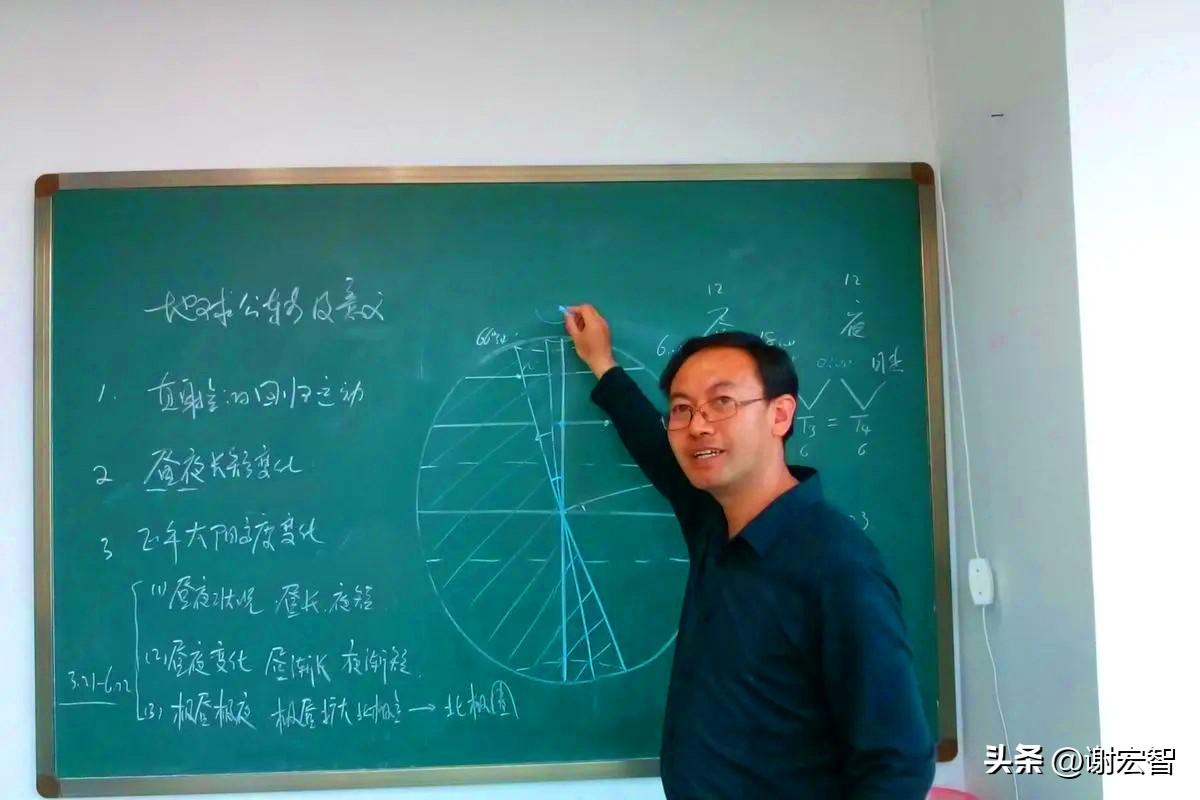 地球公转及意义
1. 直射点的回归运动
2 昼夜长短变化
3 正午太阳高度变化
(1) 昼夜状况 昼长.夜短
(2) 昼夜变化 昼渐长 夜渐短
3.21-6.22
(3) 极昼极夜 极昼扩大 北极点→北极圈
66°34'
12
昼
12
夜
6
0:00
T3 = T4
6 6
头条 @谢宏智